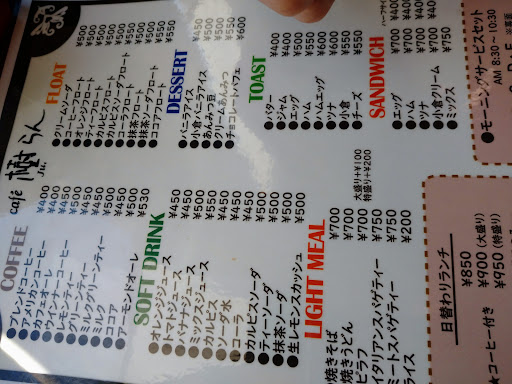 café 樹らん
Ju.
COFFEE
●ブレンドコーヒー ¥400
●アメリカンコーヒー ¥400
●カフェオーレ ¥450
●ウインナーコーヒー ¥500
●レモンティー
●ミルクティー
●グリーンティー
●ミルクグリーンティー ¥500
●ミルク ¥450
●ココア ¥500
●アーモンドオーレ ¥530
SOFT DRINK
●オレンジジュース ¥450
●トマトジュース ¥450
●バナナジュース
●ミックスジュース
●カルピス ¥450
●ソーダ水 ¥450
●コーラ ¥450
●カルピスソーダ
●ティーソーダ ¥500
●抹茶ソーダ ¥500
●生レモンスカッシュ ¥500
LIGHT MEAL
大盛り+¥100
特盛り+¥200
焼きそば ¥700
焼きうどん ¥700
ピラフ ¥700
イタリアンスパゲティー ¥750
ミートスパゲティー ¥750
ライス ¥200
FLOAT
●クリームソーダ ¥500
●オレンジフロート ¥500
●ティーフロート ¥500
●カルピスフロート
●カルピスソーダフロート
●コーヒーフロート
●抹茶フロート
●抹茶ソーダフロート ¥550
●ココアフロート ¥550
DESSERT
●バニラアイス ¥450
●小倉バニラアイス
●あんみつ豆
●クリームあんみつ ¥550
●チョコレートパフェ ¥600
TOAST
●バター ¥400
●ジャム ¥400
●エッグ
●ハム
●ハムエッグ
●ツナ
●小倉
●チーズ
SANDWICH
ハーフサイ
●エッグ ¥700 ¥400
●ハム ¥700 ¥400
●ツナ ¥700 ¥400
●小倉クリーム
●ミックス ¥750
●モーニングサービスセット
AM 8:30 - 10:30
日替わりランチ
¥850
¥900 (大盛り)
¥950 (特盛り)
★コーヒー付き